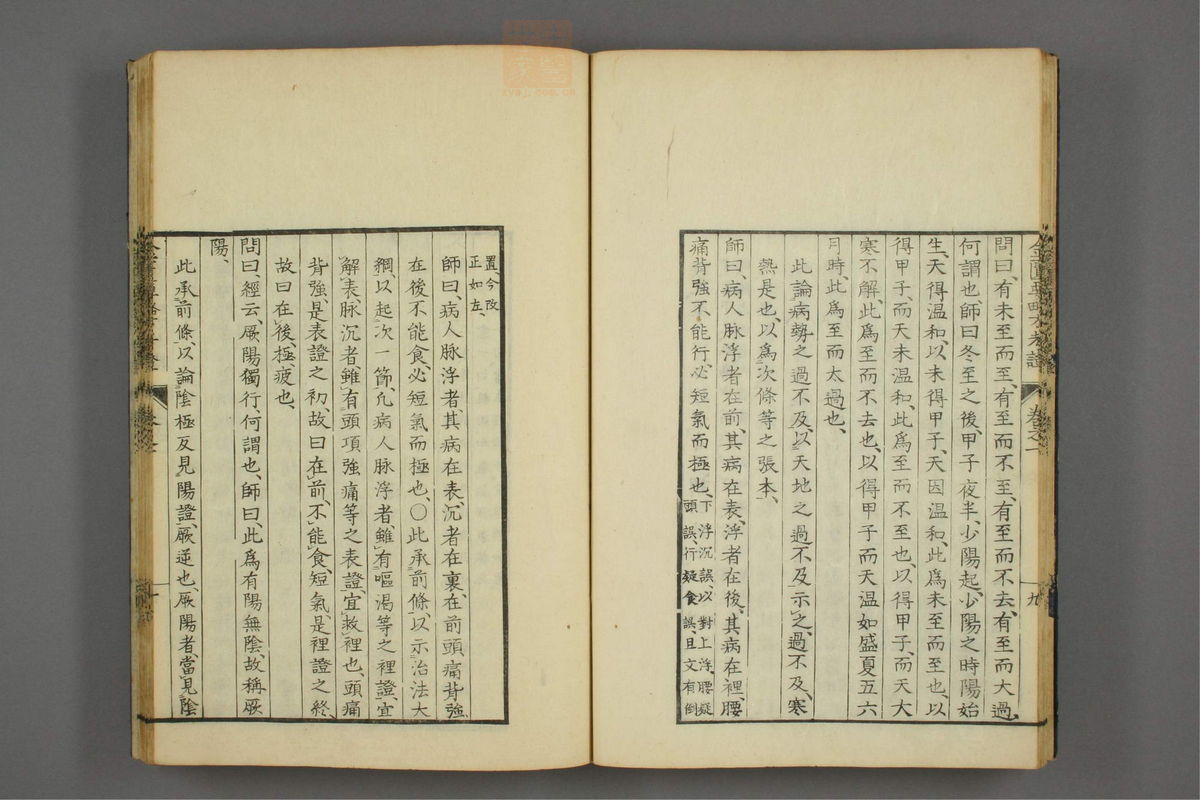 問曰、有未至而至、有至而不至、有至而不去、有至而大過、
何謂也、師曰冬至之後、甲子夜半、少陽起、少陽之時陽始
生、天得溫和、以未得甲子、天因溫和、此爲未至而至也、以
得甲子、而天未溫和、此爲至而不至也、以得甲子、而天大
寒不解、此爲至而不去也、以得甲子而天溫如盛夏五六
月時、此爲至而太過也、
此論病勢之過不及、以天地之過不及示之、過不及、寒
熱是也、以爲次條等之張本、
師曰、病人脉浮者在前、其病在表、浮者在後、其病在裡、腰
痛背強不能行、必短氣而極也、
下浮沉誤、以對上浮、腰疑
頭誤、行疑食誤、且文有倒
置、今改
正如左、
師曰、病人脉浮者、其病在表、沉者在裏、在前頭痛背強
在後不能食、必短氣而極也、〇此承前條、以示治法大
綱、以起次一節、凢病人脉浮者、雖有嘔渴等之裡證、宜
解表、脉沉者、雖有頭項強痛等之表證、宜救裡也、頭痛
背強、是表證之初、故曰在前、不能食、短氣、是裡證之終、
故曰在後、極、疲也、
問曰、經云、厥陽獨行、何謂也、師曰、此爲有陽無陰、故稱厥
陽、
此承前條、以論陰極反見陽證、厥逆也、厥陽者、當見陰
卷之一
九